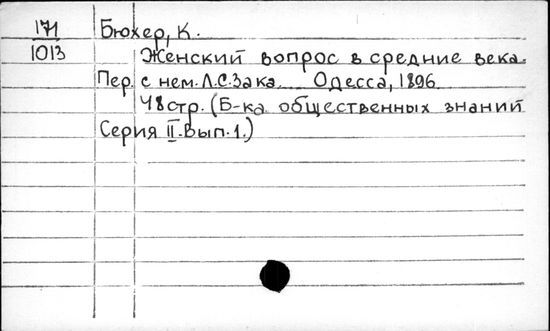 171
1013
Бюхер, К.
Женский вопрос в средние века.
Пер. с нем. Л.С. Зака. Одесса, 1896.
48 стр. (Б-ка общественных знаний
Серия II. Вып. 1.)